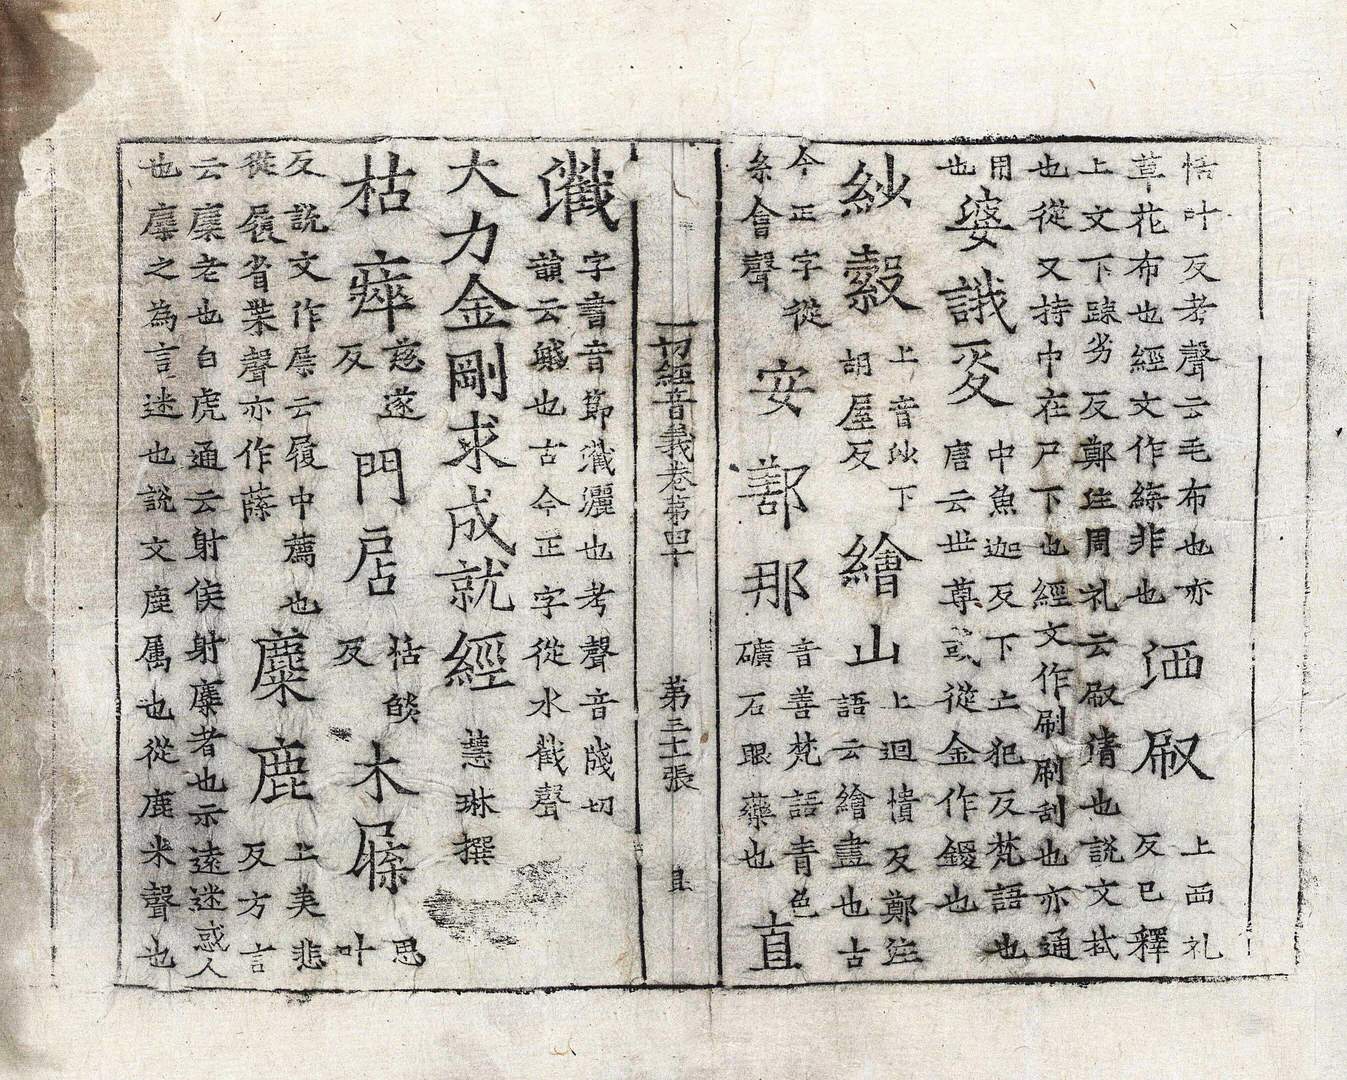 恬叶反考聲云毛布也亦
草花布也經文作緤非也
洒㕞
上西礼
反已釋
上文下踈劣反鄭注周礼云㕞清也說文拭
也從又持巾在尸下也經文作刷刷刮也亦通
用
也
婆誐㝹
中魚迦反下亡犯反梵語也
唐云世尊或從金作鑁也
紗縠
上音紗下
胡屋反
繪山
上迴憒反鄭注
語云繪畫也古
今正字從
糸會聲
安鄯那
音善梵語青色
礦石眼藥也
直
一切經音義卷第四十
第三十張
㠯
瀐
字書音節瀐灑也考聲音牋切
韻云㡨也古今正字從水截聲
大力金剛求成就經
慧琳撰
枯瘁
慈遂
反
門㡱
恬㷔
反
木屧
思
叶
反說文作屟云履中薦也
從履省枼聲亦作𧞤
麋鹿
上美悲
反方言
云麋老也白虎通云射侯射麋者也示遠迷惑人
也麋之為言迷也說文鹿属也從鹿米聲也